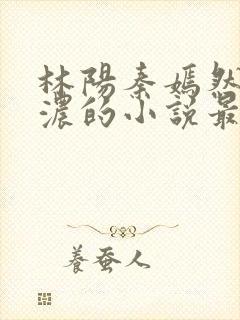 林陽秦嫣然
濃的小說最
養蚕人